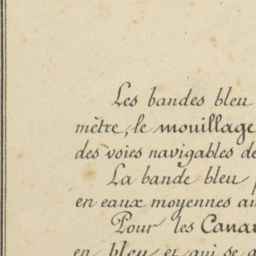 Les bandes bleu
mètre, le mouillage
des voies navigables de
La bande bleu
en eaux moyennes au
Pour les Canau
en bleu et qui se